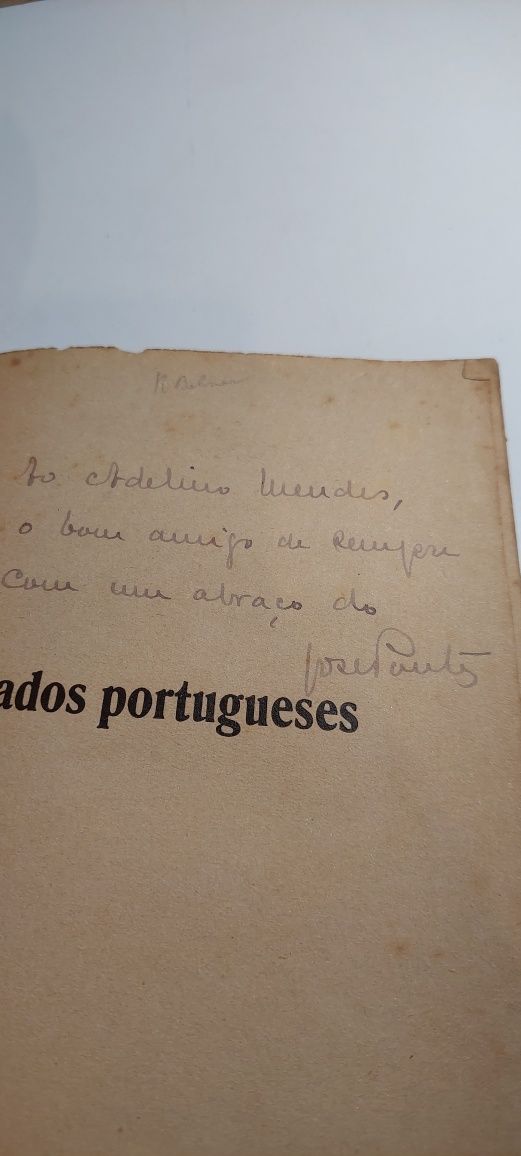 Ao Adelino Mendes,
o bom amigo de sempre
com um abraço do
José Pontes
ados portugueses